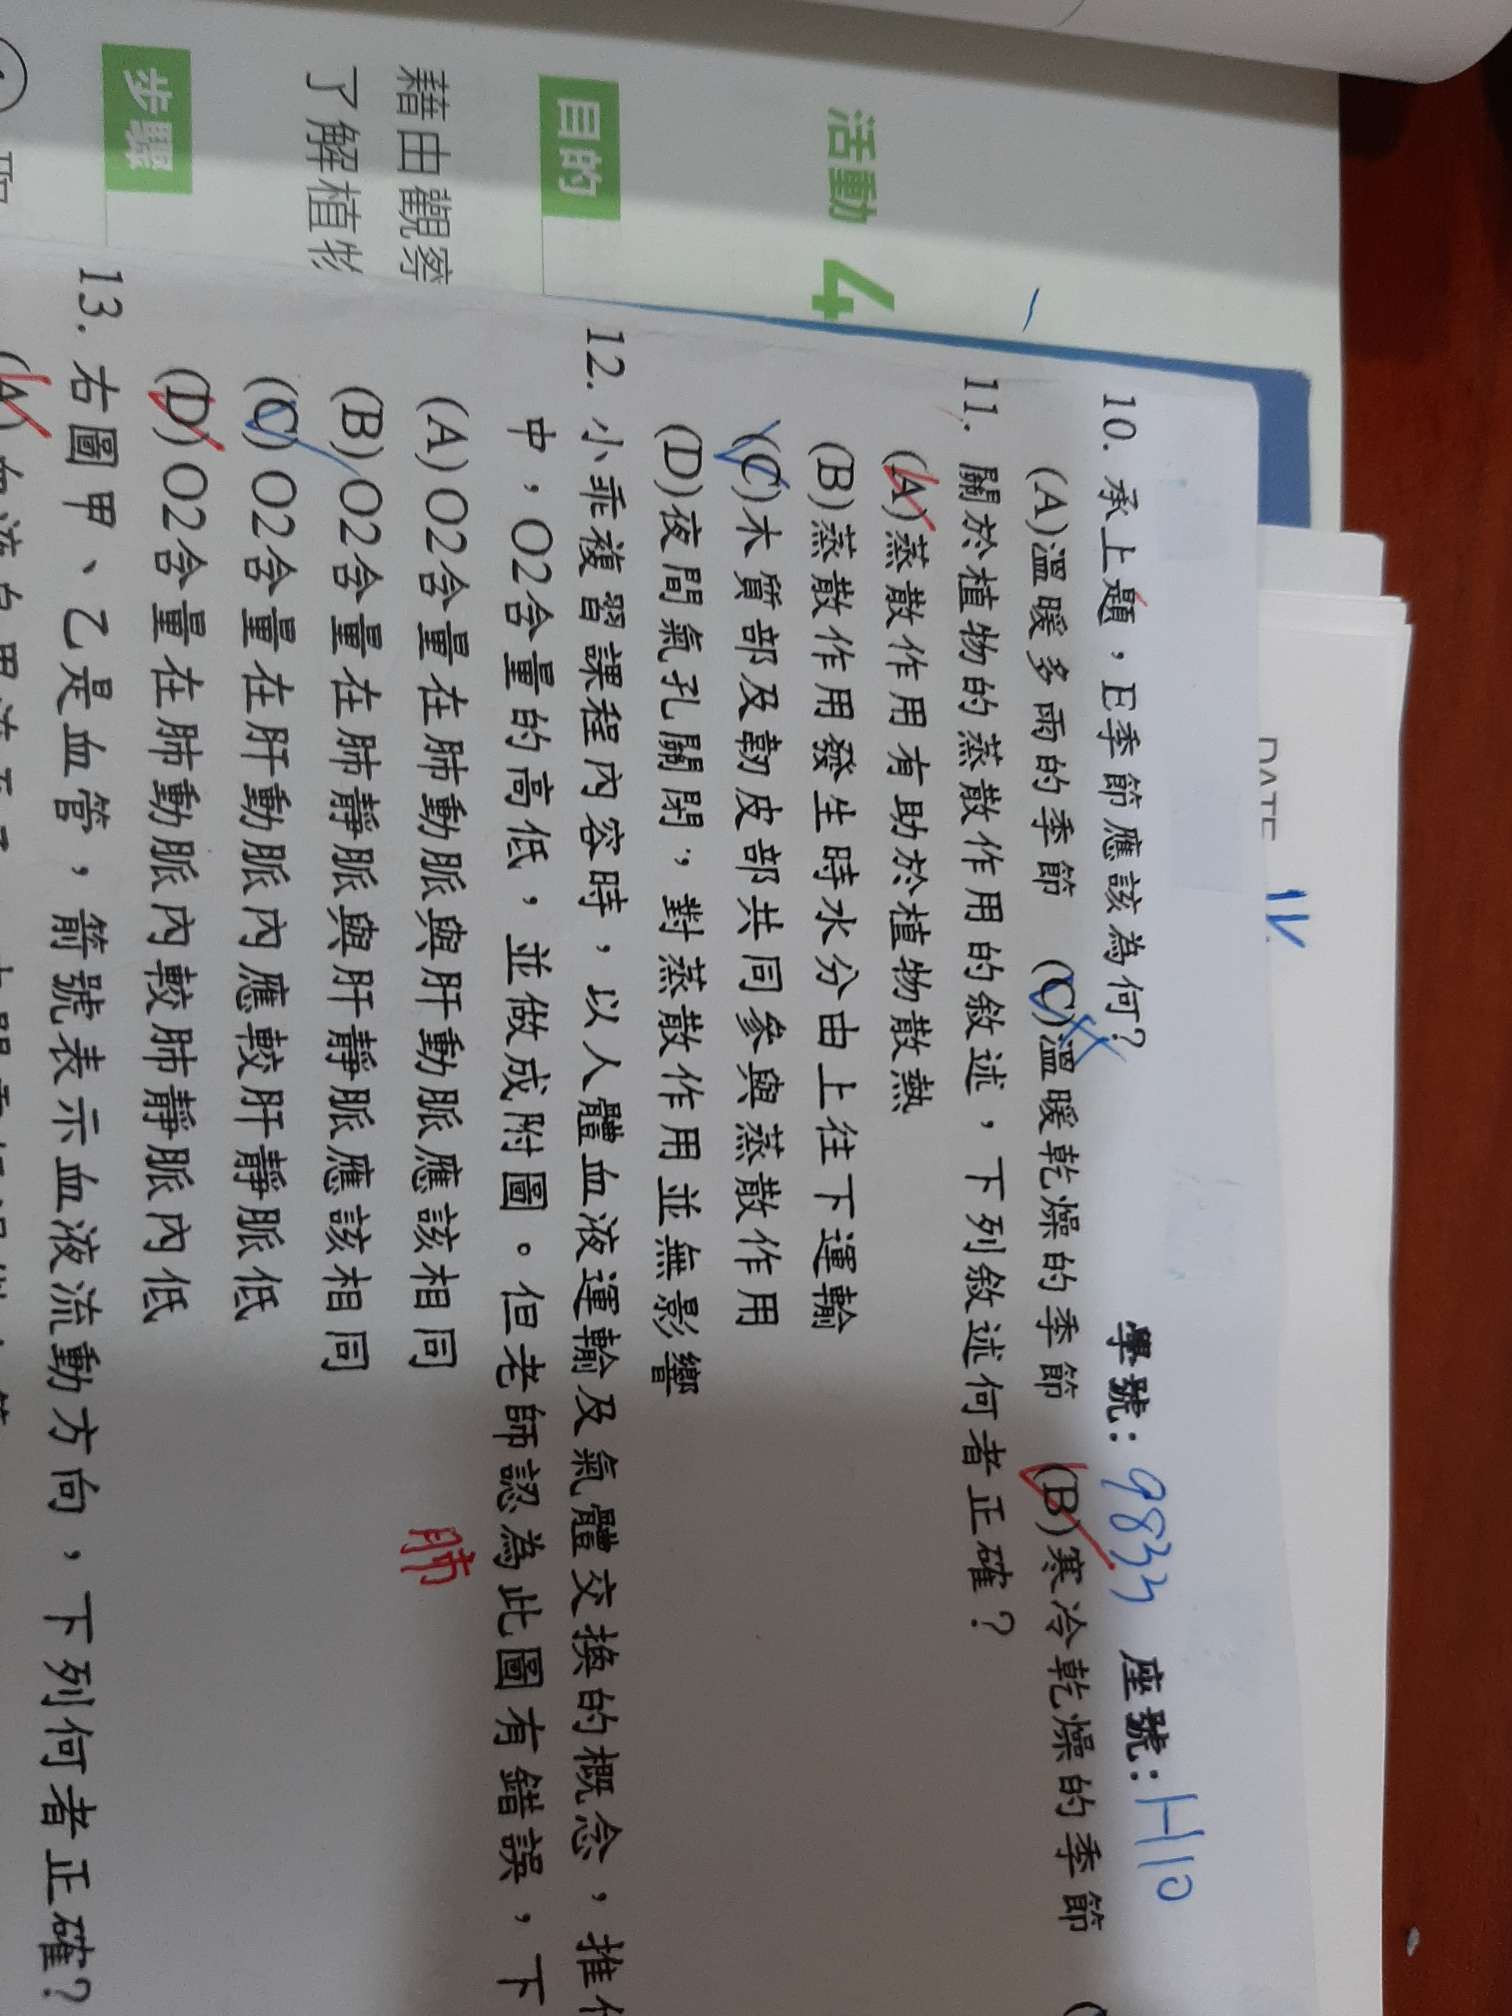 活動4
目的
藉由觀察
了解植物
步驟
DATE
學號：9833 座號：H10
10. 承上題，E季節應該為何？
(A)溫暖多雨的季節 (C)溫暖乾燥的季節 (B)寒冷乾燥的季節
11. 關於植物的蒸散作用的敘述，下列敘述何者正確？
(A)蒸散作用有助於植物散熱
(B)蒸散作用發生時水分由上往下運輸
(C)木質部及韌皮部共同參與蒸散作用
(D)夜間氣孔關閉，對蒸散作用並無影響
12. 小乖複習課程內容時，以人體血液運輸及氣體交換的概念，推
中，O2含量的高低，並做成附圖。但老師認為此圖有錯誤，下
(A)O2含量在肺動脈與肝動脈應該相同
肺
(B)O2含量在肺靜脈與肝靜脈應該相同
(C)O2含量在肝動脈內應較肝靜脈低
(D)O2含量在肺動脈內較肺靜脈內低
13. 右圖甲、乙是血管，箭號表示血液流動方向，下列何者正確？
(A)血液由甲流